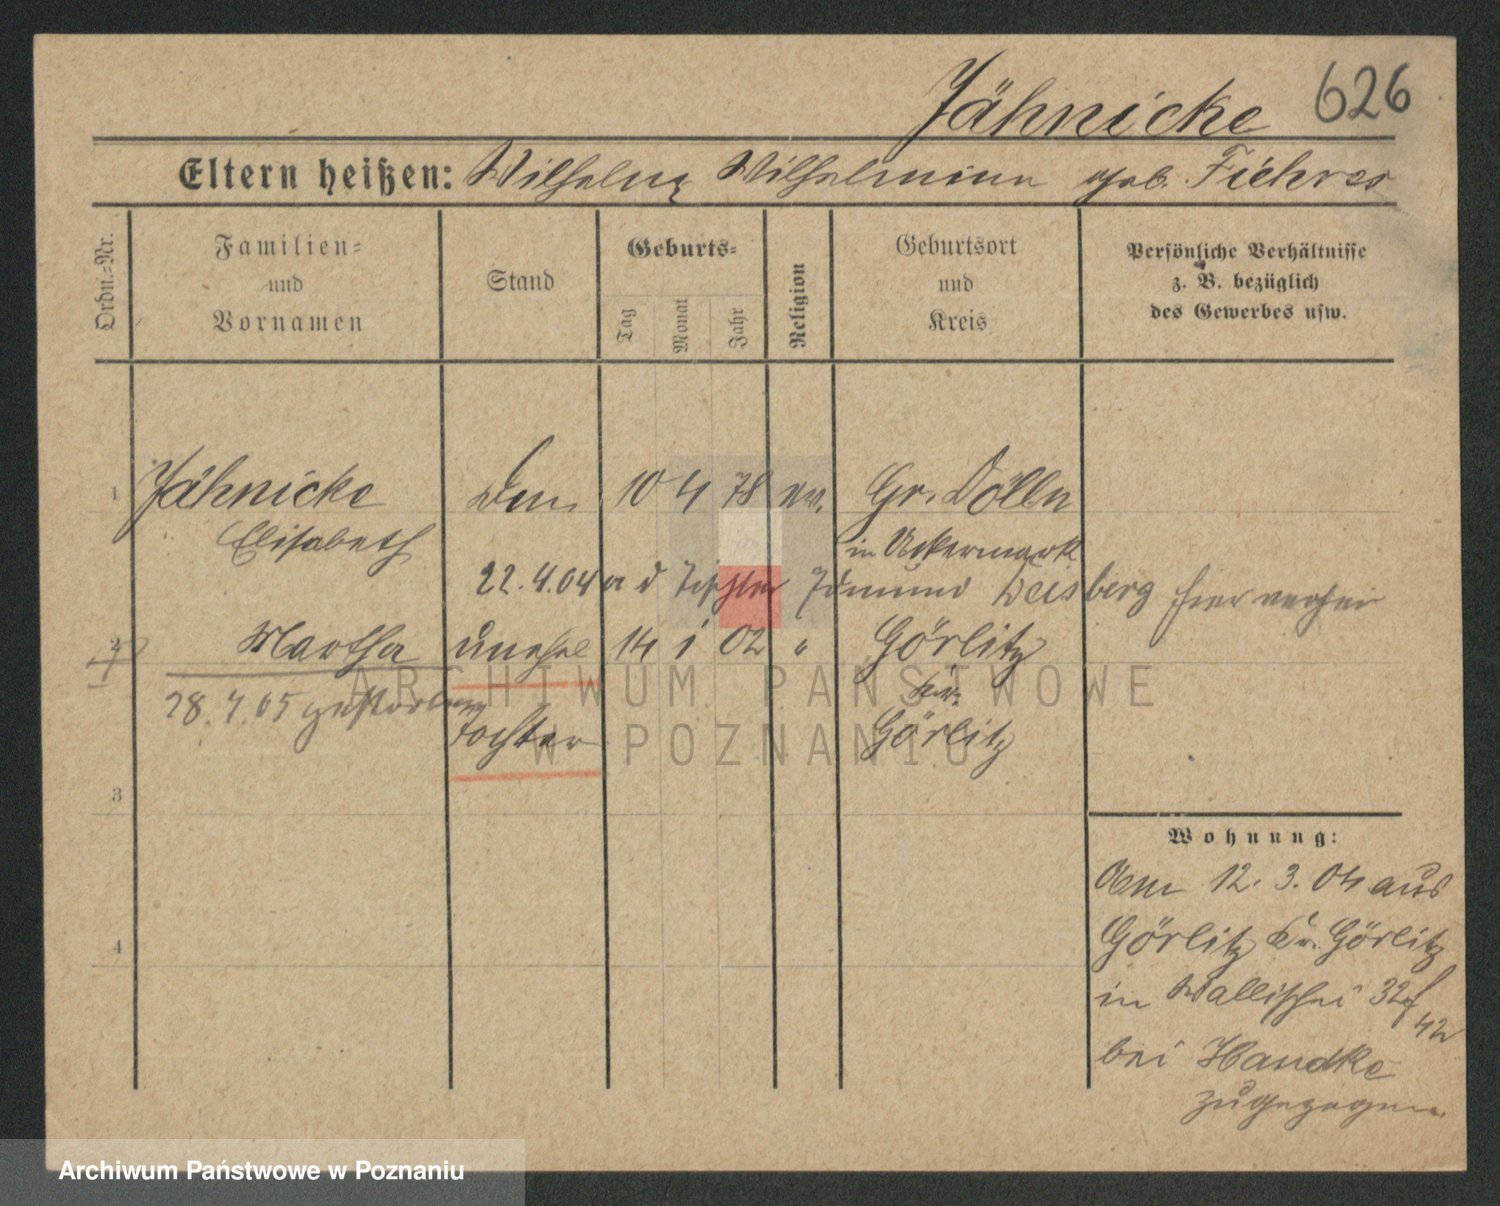 Jähnicke 626
Eltern heißen: Wilhelm, Wilhelmine geb.
Ordn.=Nr. Familien= und Vornamen Stand Geburts= Tag Monat Jahr Religion Geburtsort und Kreis Persönliche Verhältnisse z. B. bezüglich des Gewerbes usw.
1 Jähnicke 10 4 78 ev. Gr. Dölln
Elisabeth in Uckermark
22.4.04 a d Tischler Edmund Deisberg hier verhei
2 Martha unehel 14 1 02 " Görlitz
28.4.05 gestorben Kr.
Tochter Görlitz
3
Wohnung:
Am 12.3.04 aus
4 Görlitz Kr. Görlitz
in Wallischei 32
42
bei Handke
zugezogen
ARCHIWUM PAŃSTWOWE
W POZNANIU
Archiwum Państwowe w Poznaniu